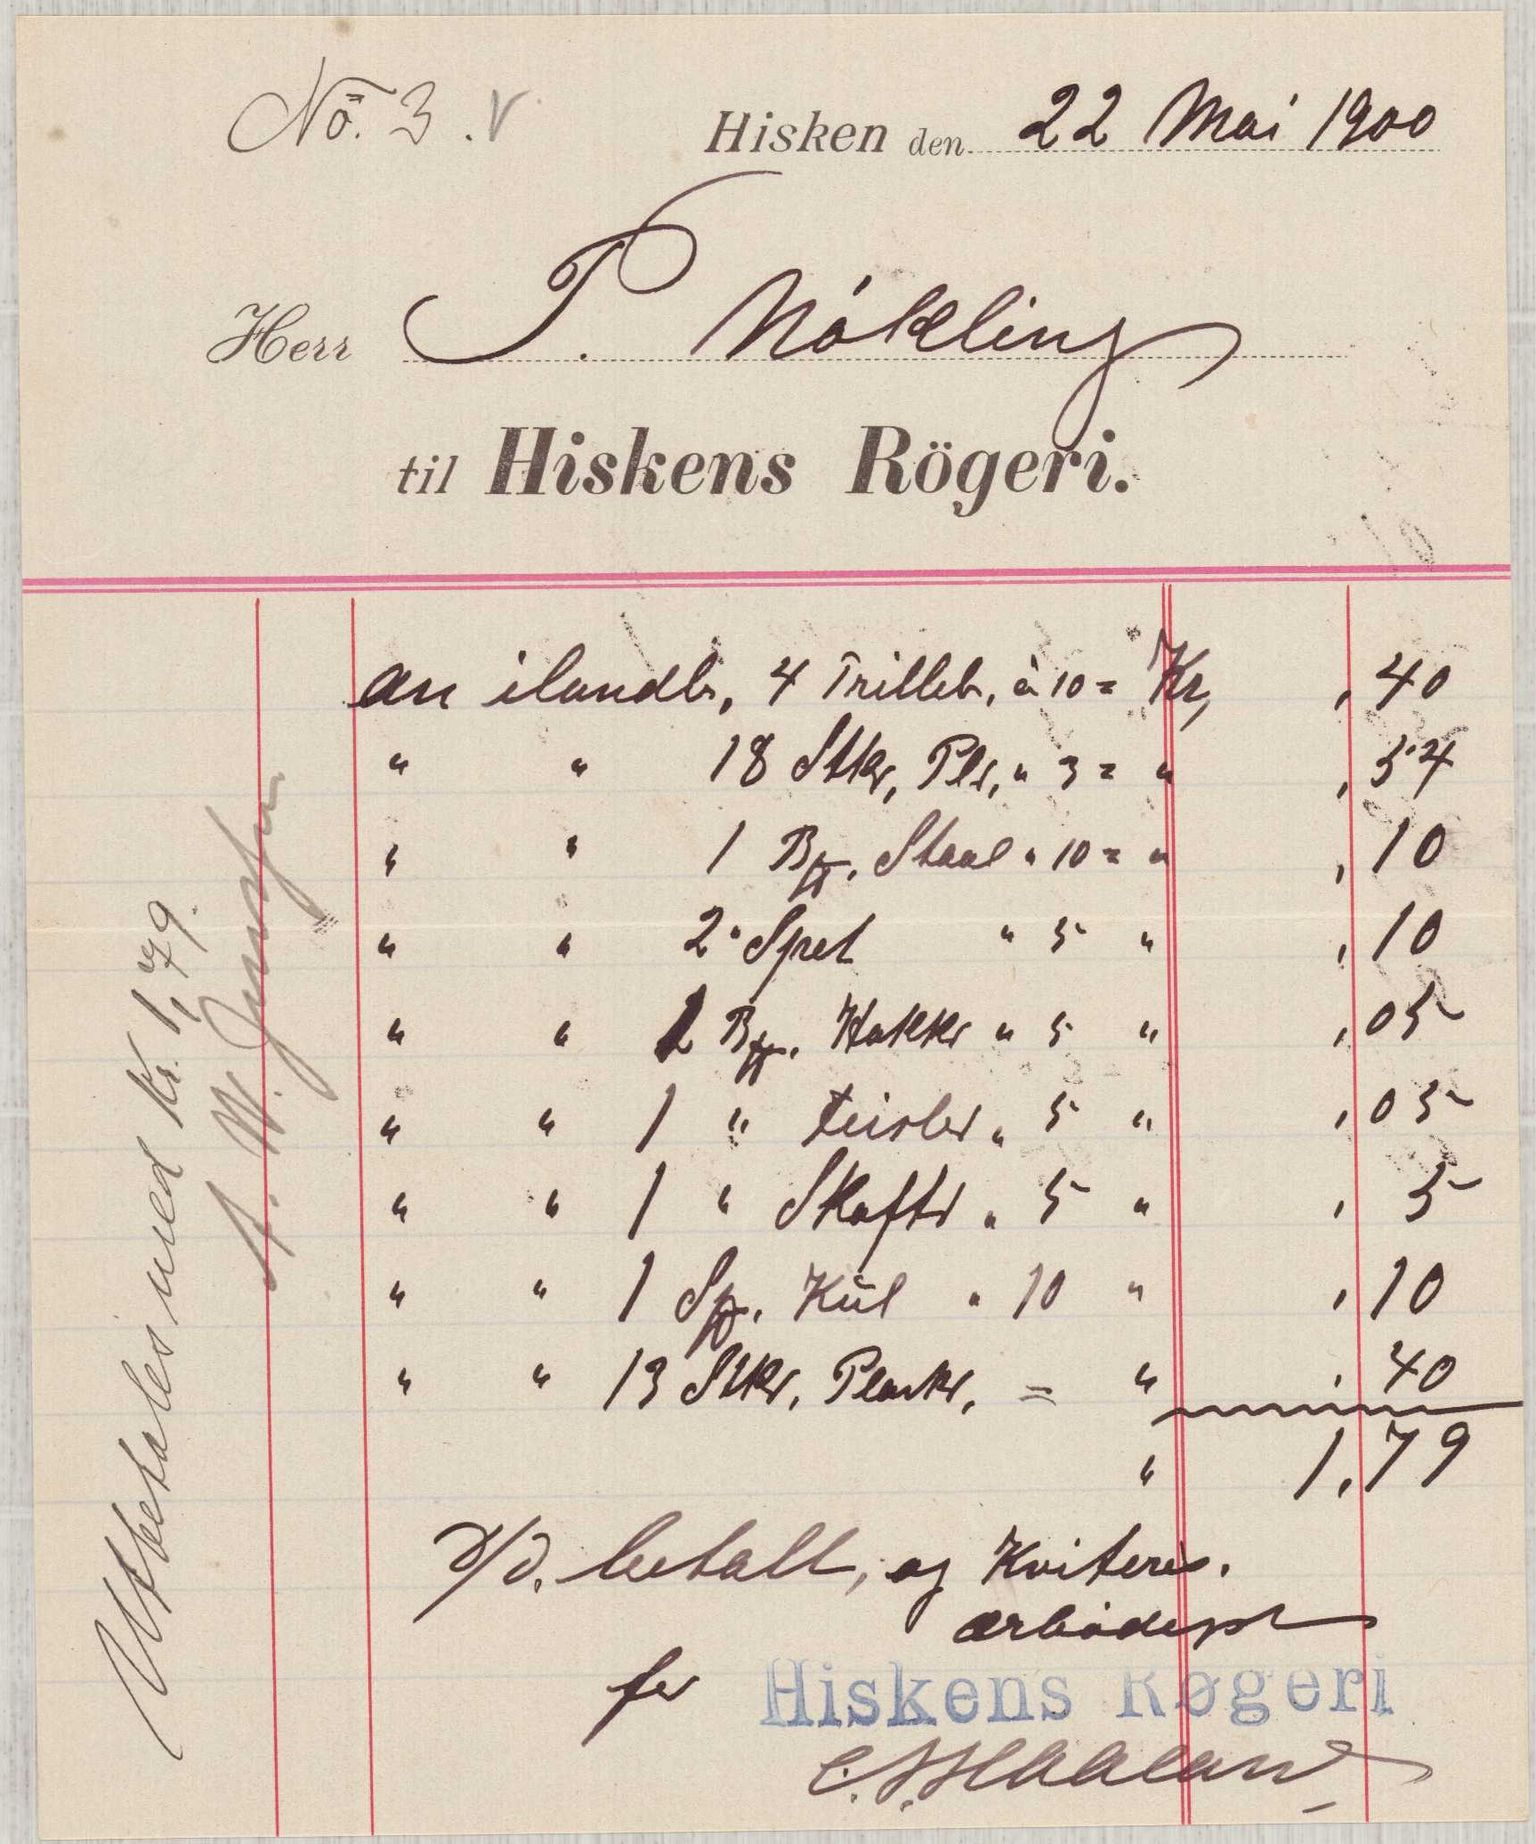 No. 3. V
Hisken den 22 Mai 1900
Herr T. Nökling
til Hiskens Rögeri.
an ilandbr, 4 Trilleb, à 10 = Kr, , 40
" " 18 Stkr, Pls, " 3 = " , 54
" " 1 Staal " 10 = " , 10
" " 2 Spet " 5 " , 10
" " Hakkr " 5 " , 05
" " 1 " Feisler " 5 " , 05
" " 1 " Skaftr " 5 " , 5
" " 1 Kul " 10 " , 10
" " 13 Stkr, Plankr, = " , 40
" 1,79
D/D. betalt, og Kviteres.
ærbödigst
for Hiskens Røgeri
Utbetales med Kr. 1,79.
A. W.